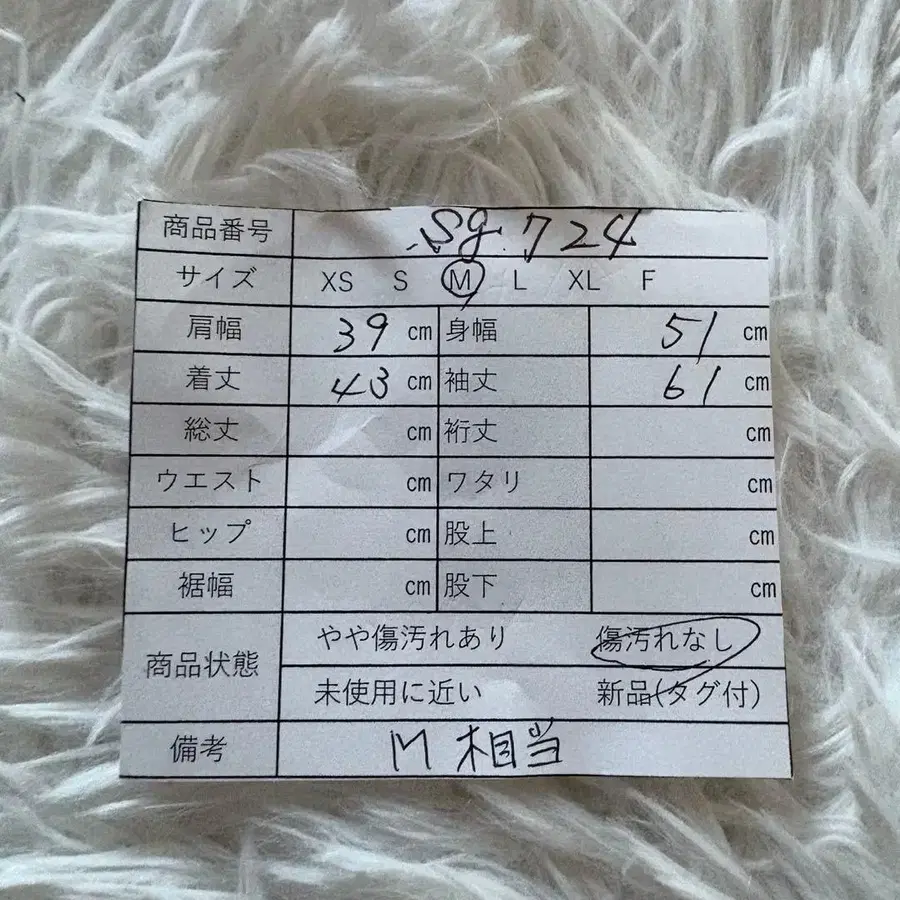 商品番号 Sg.724
サイズ XS S M L XL F
肩幅 39 cm 身幅 51 cm
着丈 43 cm 袖丈 61 cm
総丈 cm 裄丈 cm
ウエスト cm ワタリ cm
ヒップ cm 股上 cm
裾幅 cm 股下 cm
商品状態 やや傷汚れあり 傷汚れなし
未使用に近い 新品(タグ付)
備考 M 相当